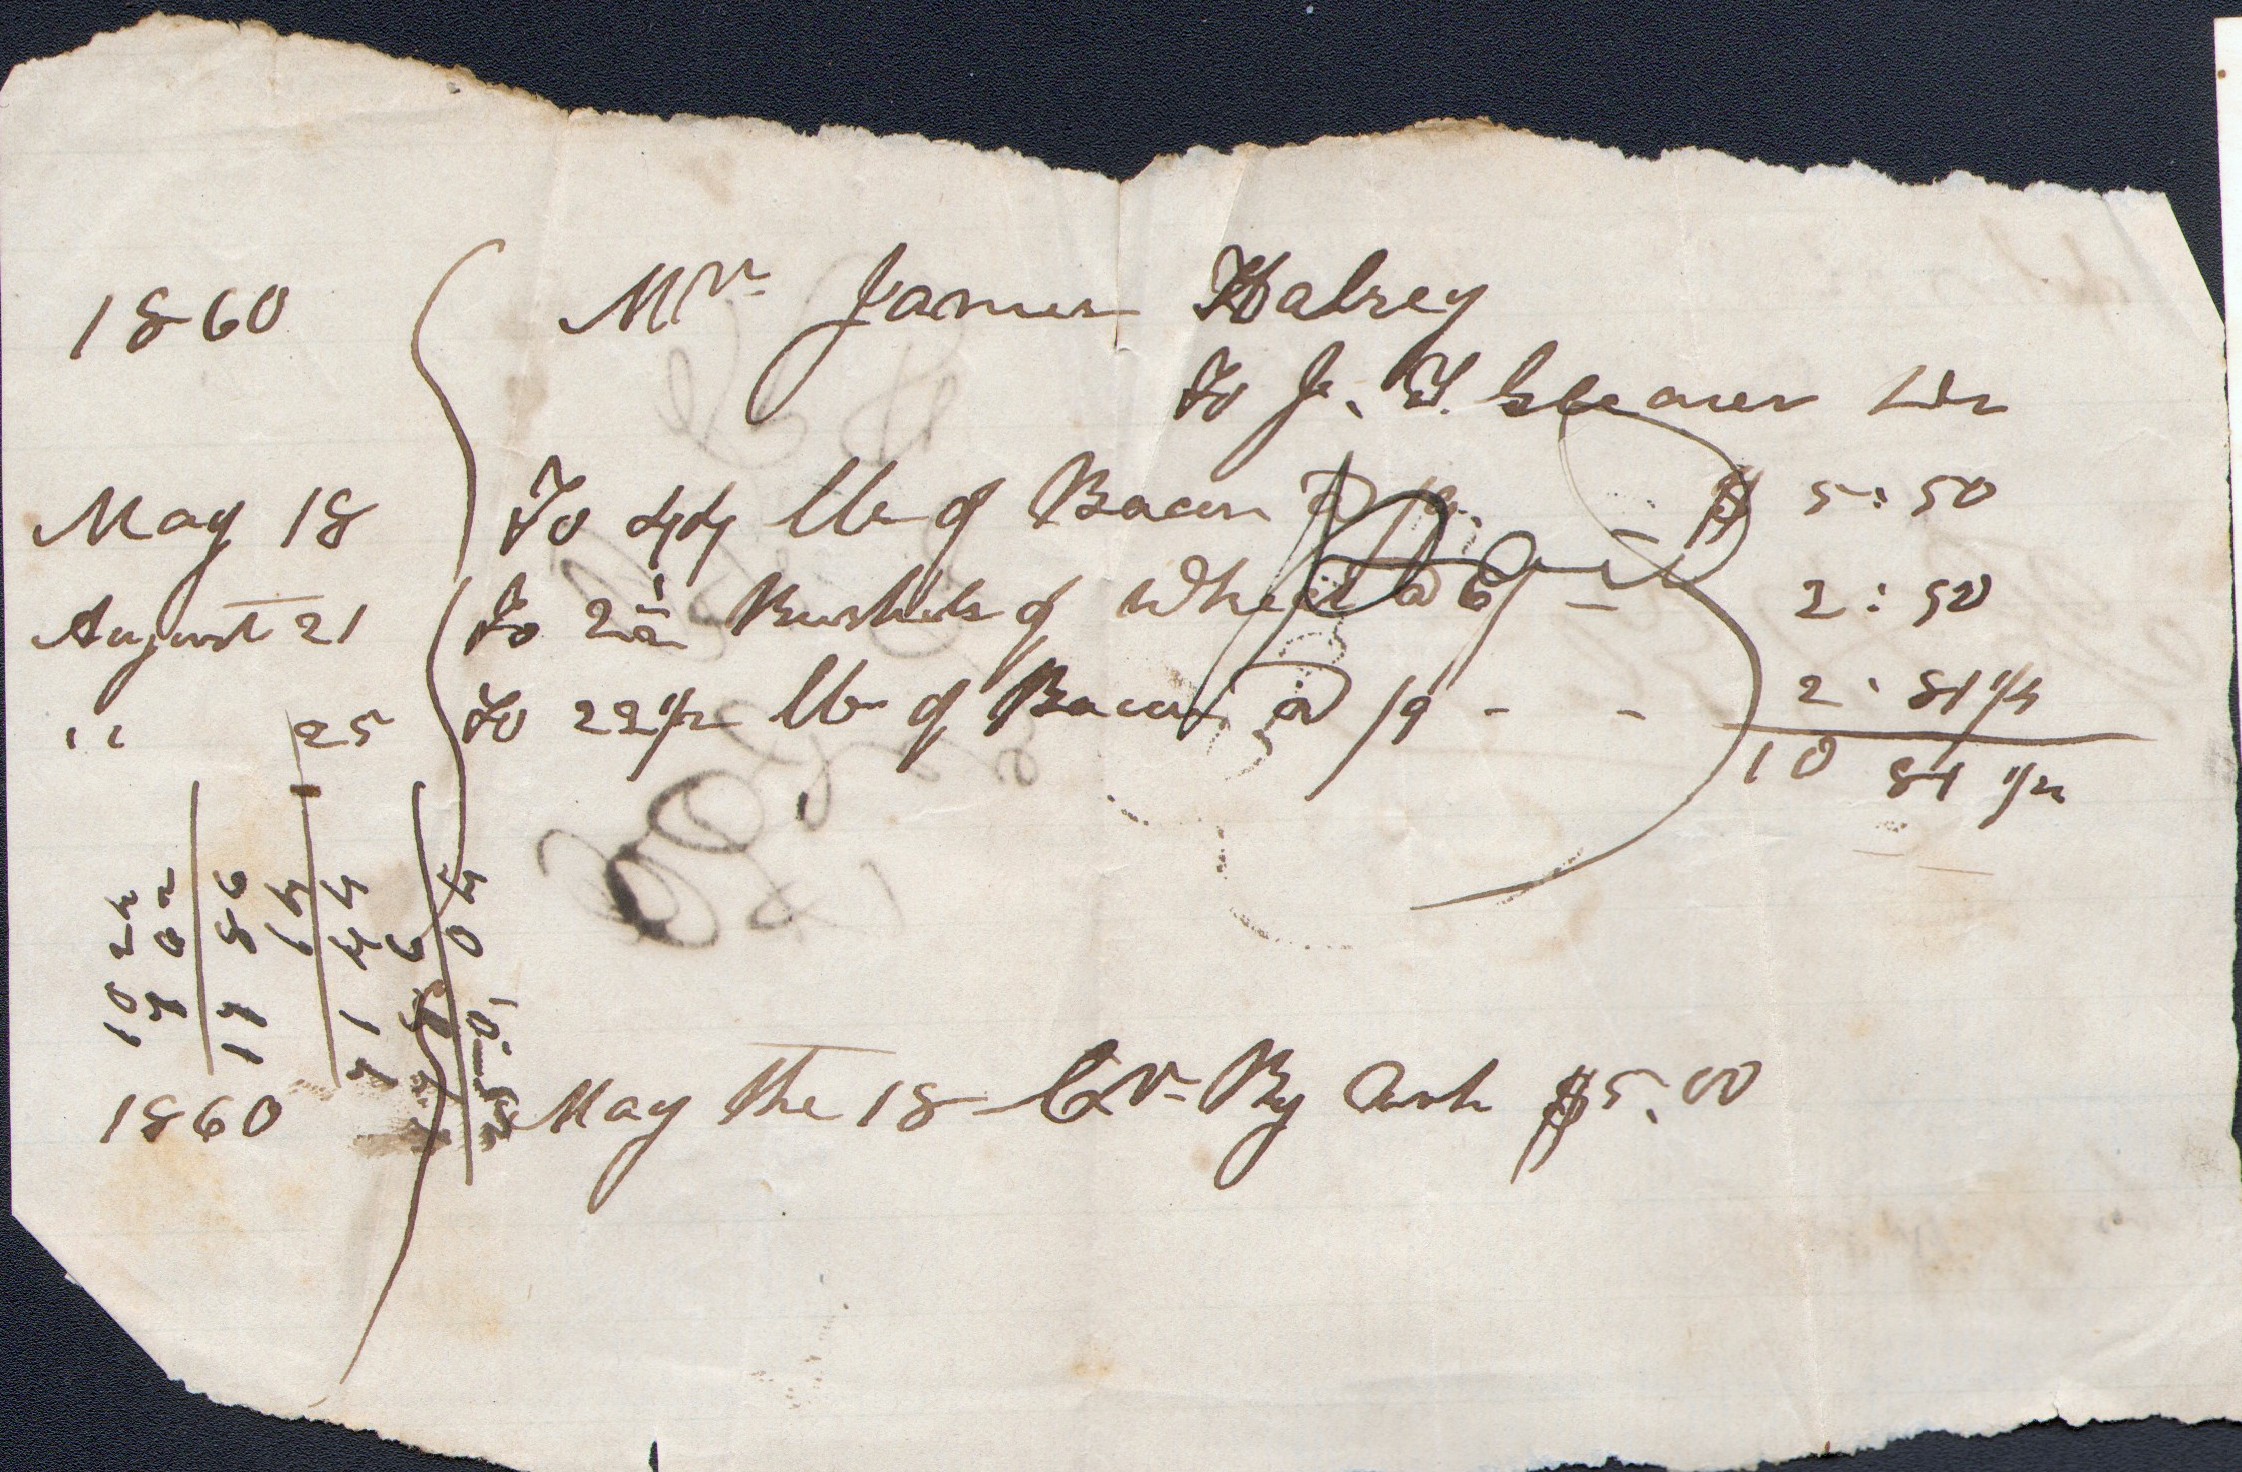 1860 Mr. James Halsey
To J. T. Shearer Dr
May 18 To 44 lbs of Bacon @ /9. - $ 5:50
August 21 To 2 1/2 Bushels of Wheat @ 6/ - 2:50
" 25 To 22 1/2 lbs of Bacon @ /9 - - 2:81 1/4
10 81 1/4
1860 May the 18 Cr By Cash $5.00
Paid